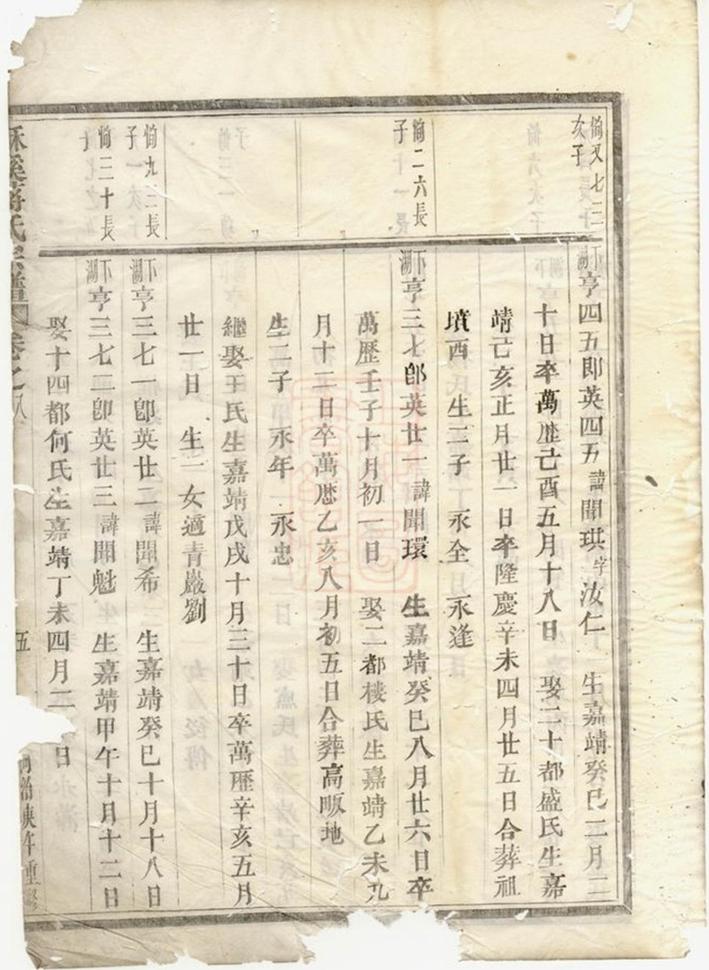 恂又七三
次子
下湖
亨四五即英四五 諱開珙 字汝仁 生嘉靖癸巳二月二
十日卒萬歷己酉五月十八日 娶二十都盛氏生嘉
靖己亥正月廿一日卒隆慶辛未四月廿五日合葬祖
墳西 生二子 永全 永逢
恂二六長
子
下湖
亨三七郎英廿一 諱開環 生嘉靖癸巳八月廿六日卒
萬歷壬子十月初一日 娶二都樓氏生嘉靖乙未九
月十二日卒萬歷乙亥八月初五日合葬高畈地
生二子 永年 永忠
繼娶王氏生嘉靖戊戌十月三十日卒萬歷辛亥五月
廿一日 生一女適青巖劉
恂九三長
子
下湖
亨三七一卽英廿二 諱開希 生嘉靖癸巳十月十八日
恂三十長
子
下湖
亨三七二卽英廿三 諱開魁 生嘉靖甲午十月十二日
娶十四都何氏生嘉靖丁未四月二 日
溪蔣氏宗譜 卷之八
五
重修